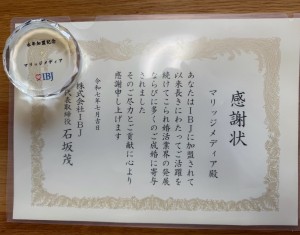 永年加盟記念
マリッジメディア
IBJ
感謝状
マリッジメディア殿
あなたはIBJに加盟されて
以来長きにわたってご活躍を
続けてこられ婚活業界の発展
ならびに多くのご成婚に寄与
されました
そのご尽力とご貢献に心より
感謝申し上げます
令和七年七月吉日
株式会社IBJ
代表取締役 石坂茂